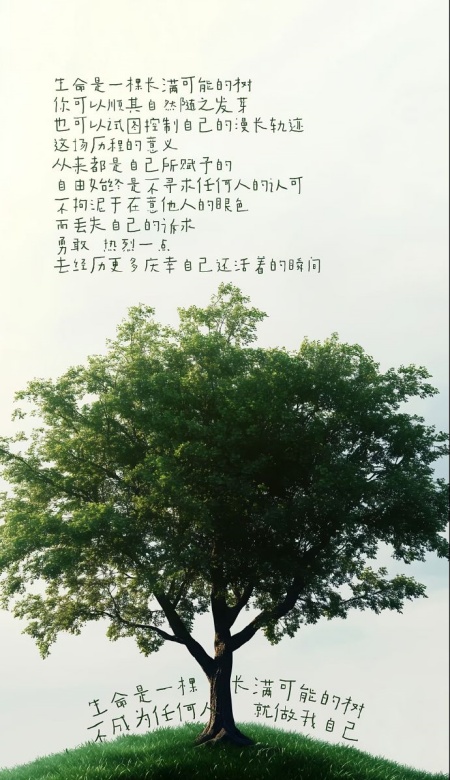 生命是一棵长满可能的树
你可以顺其自然随之发芽
也可以试图控制自己的漫长轨迹
这场历程的意义
从来都是自己所赋予的
自由始终是不寻求任何人的认可
不拘泥于在意他人的眼色
而丢失自己的诉求
勇敢 热烈一点
去经历更多庆幸自己还活着的瞬间
生命是一棵 长满可能的树
不成为任何人 就做我自己